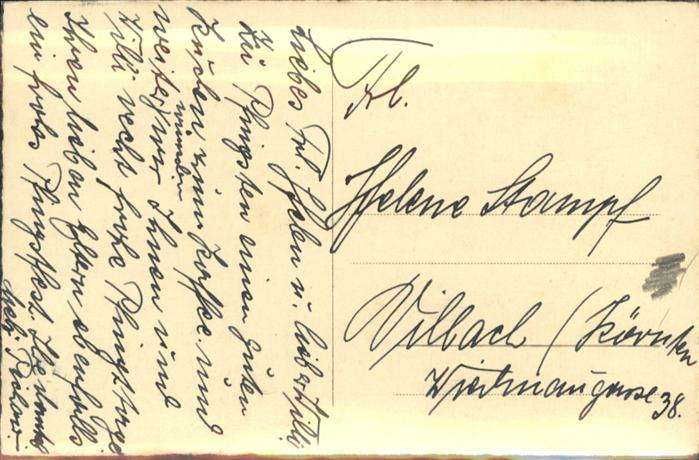 Liebes Frl. Helen u. lieber Willi
Zu Pfingsten einen guten
Kuchen zum Kaffee und
wünschen wir Ihnen und
Willi recht frohe Pfingsttage
Ihren lieben Eltern ebenfalls
ein frohes Pfingstfest.
Frl.
Helene Stampf
Villach / Kärnten
38.